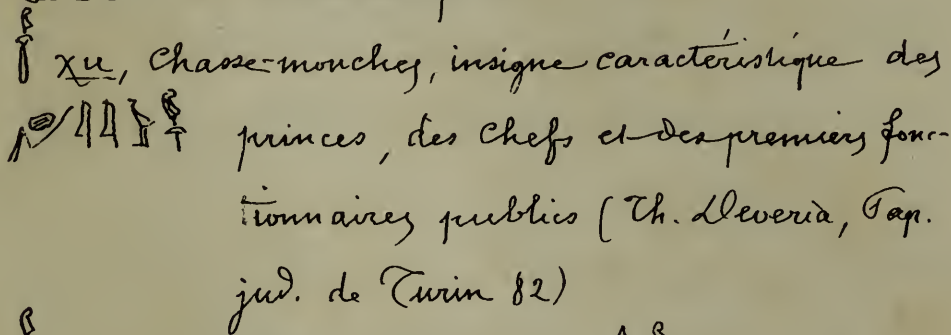 χu, Chasse-mouches, insigne caractéristique des
princes, des chefs et des premiers fonc-
tionnaires publics (Th. Deveria, Pap.
jud. de Turin 82)